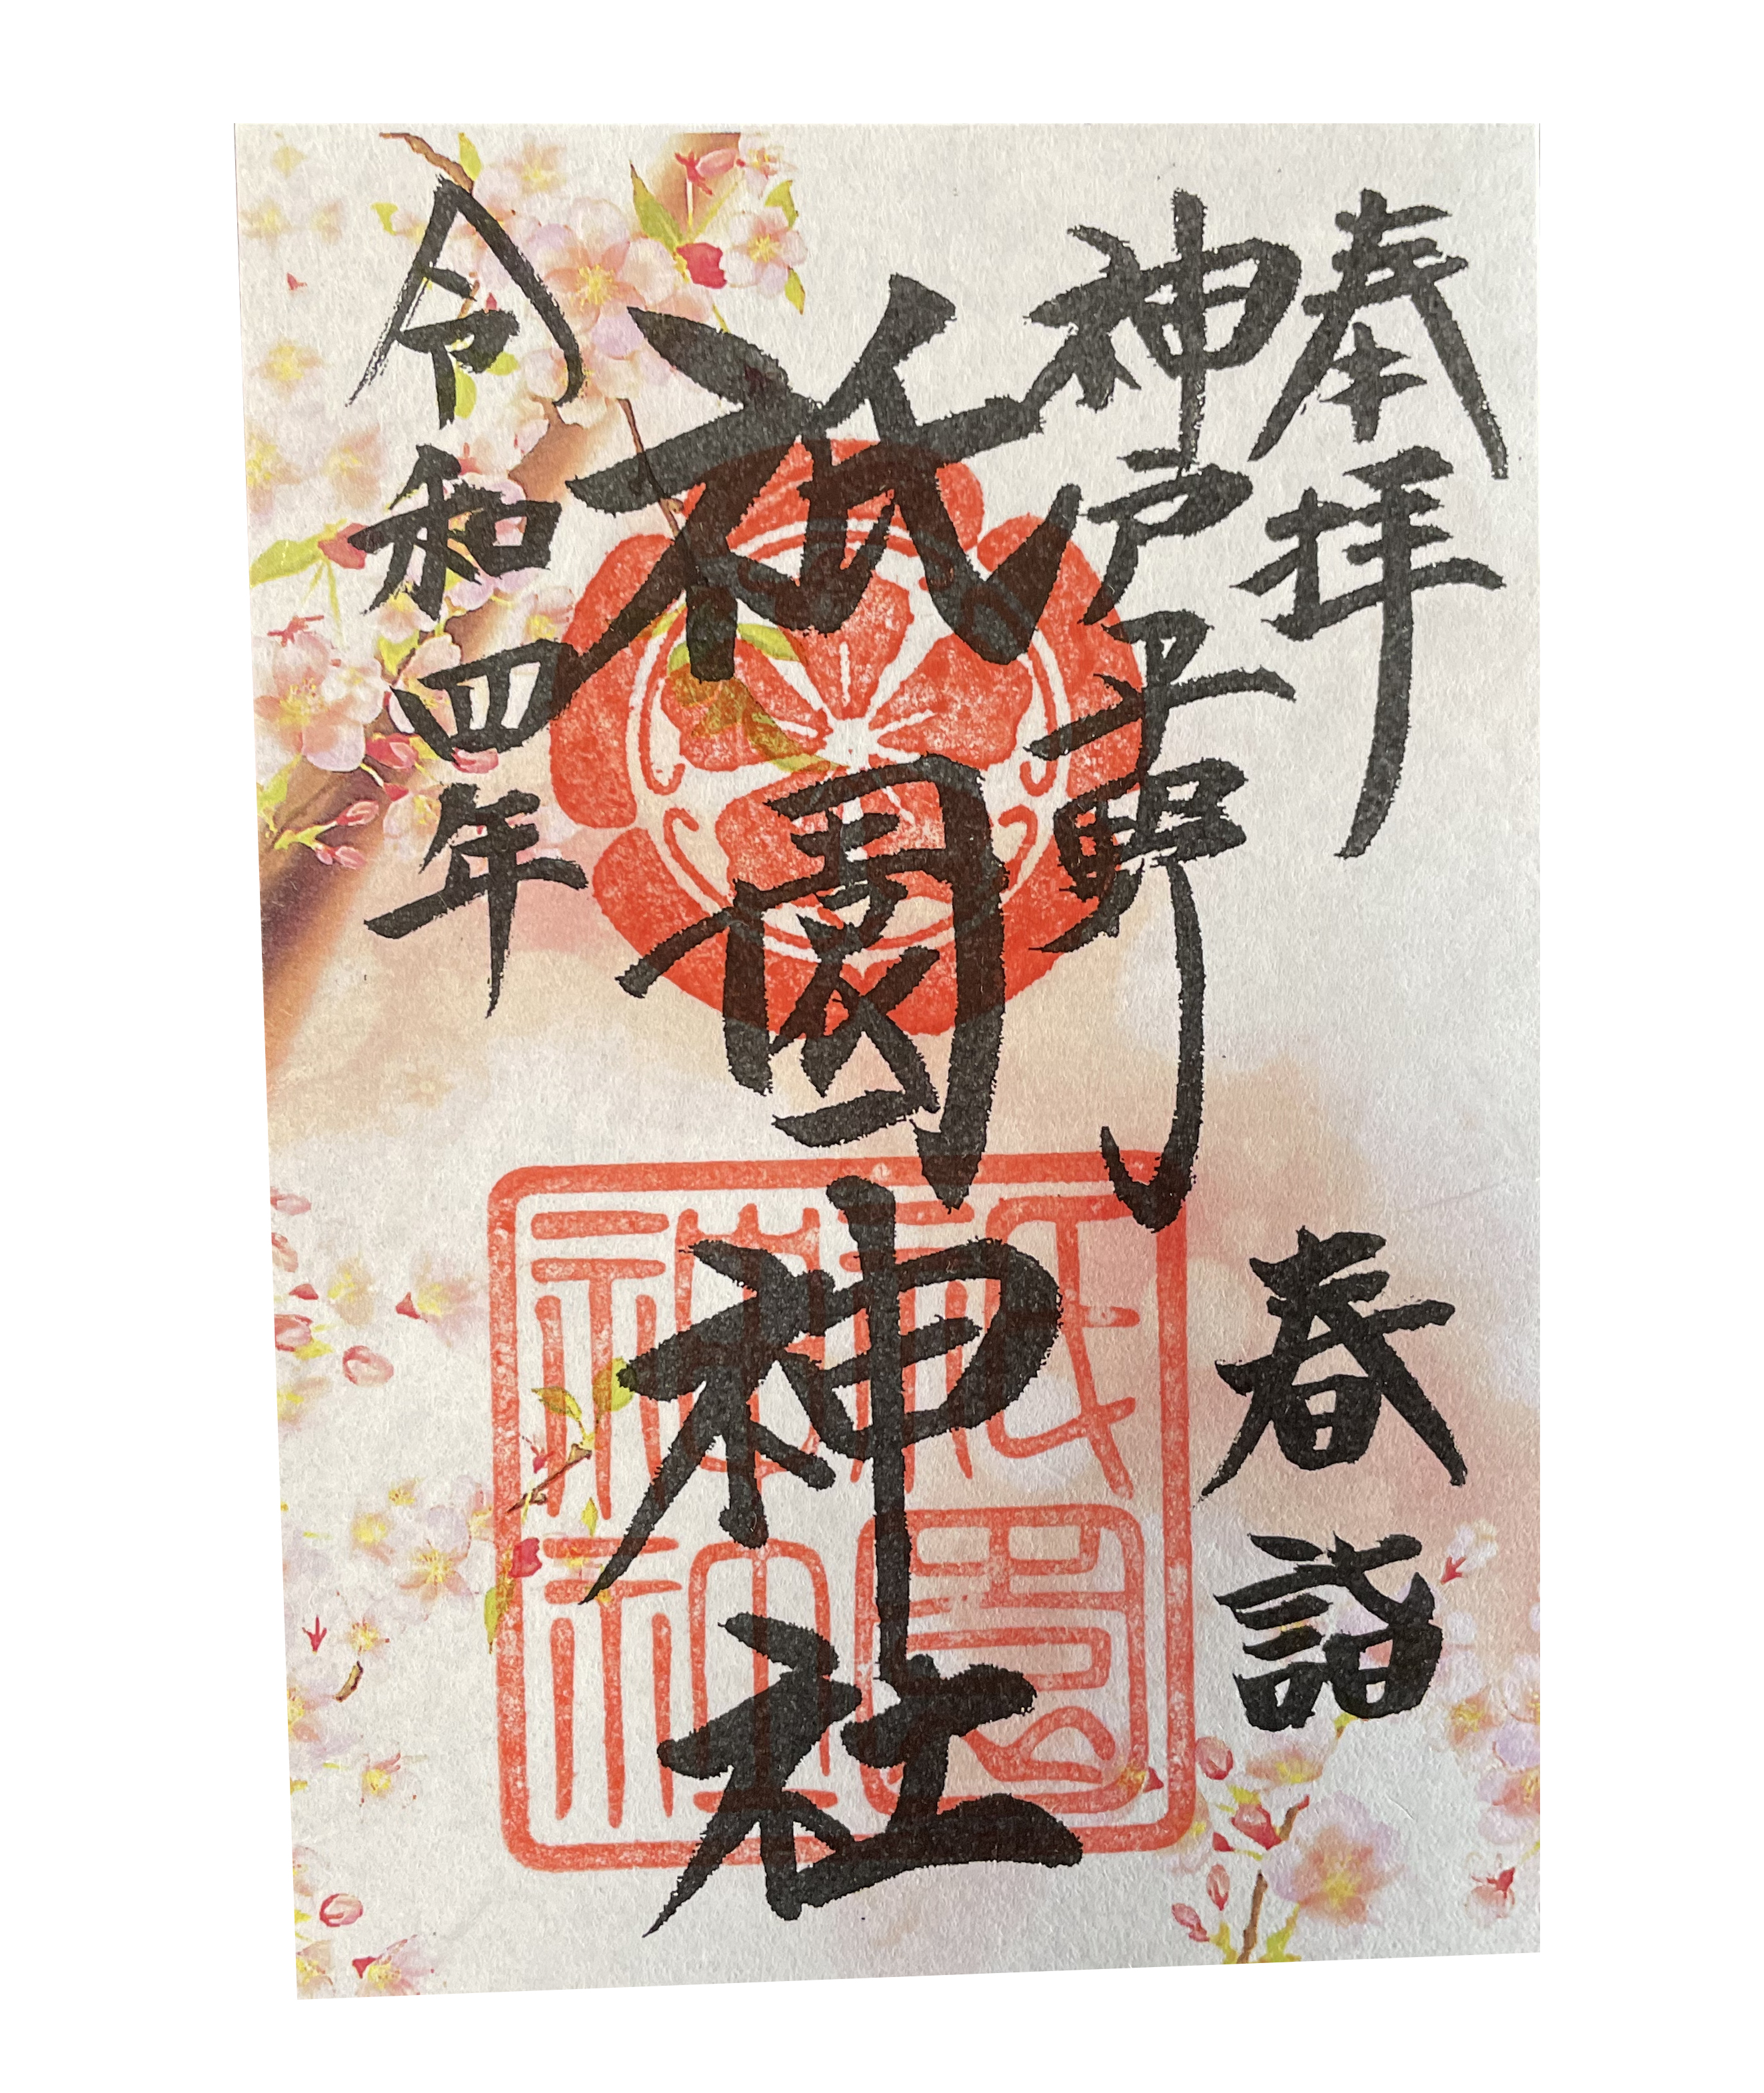 奉拝
春詣
神戸平野
祇園神社
祇園神社
令和四年